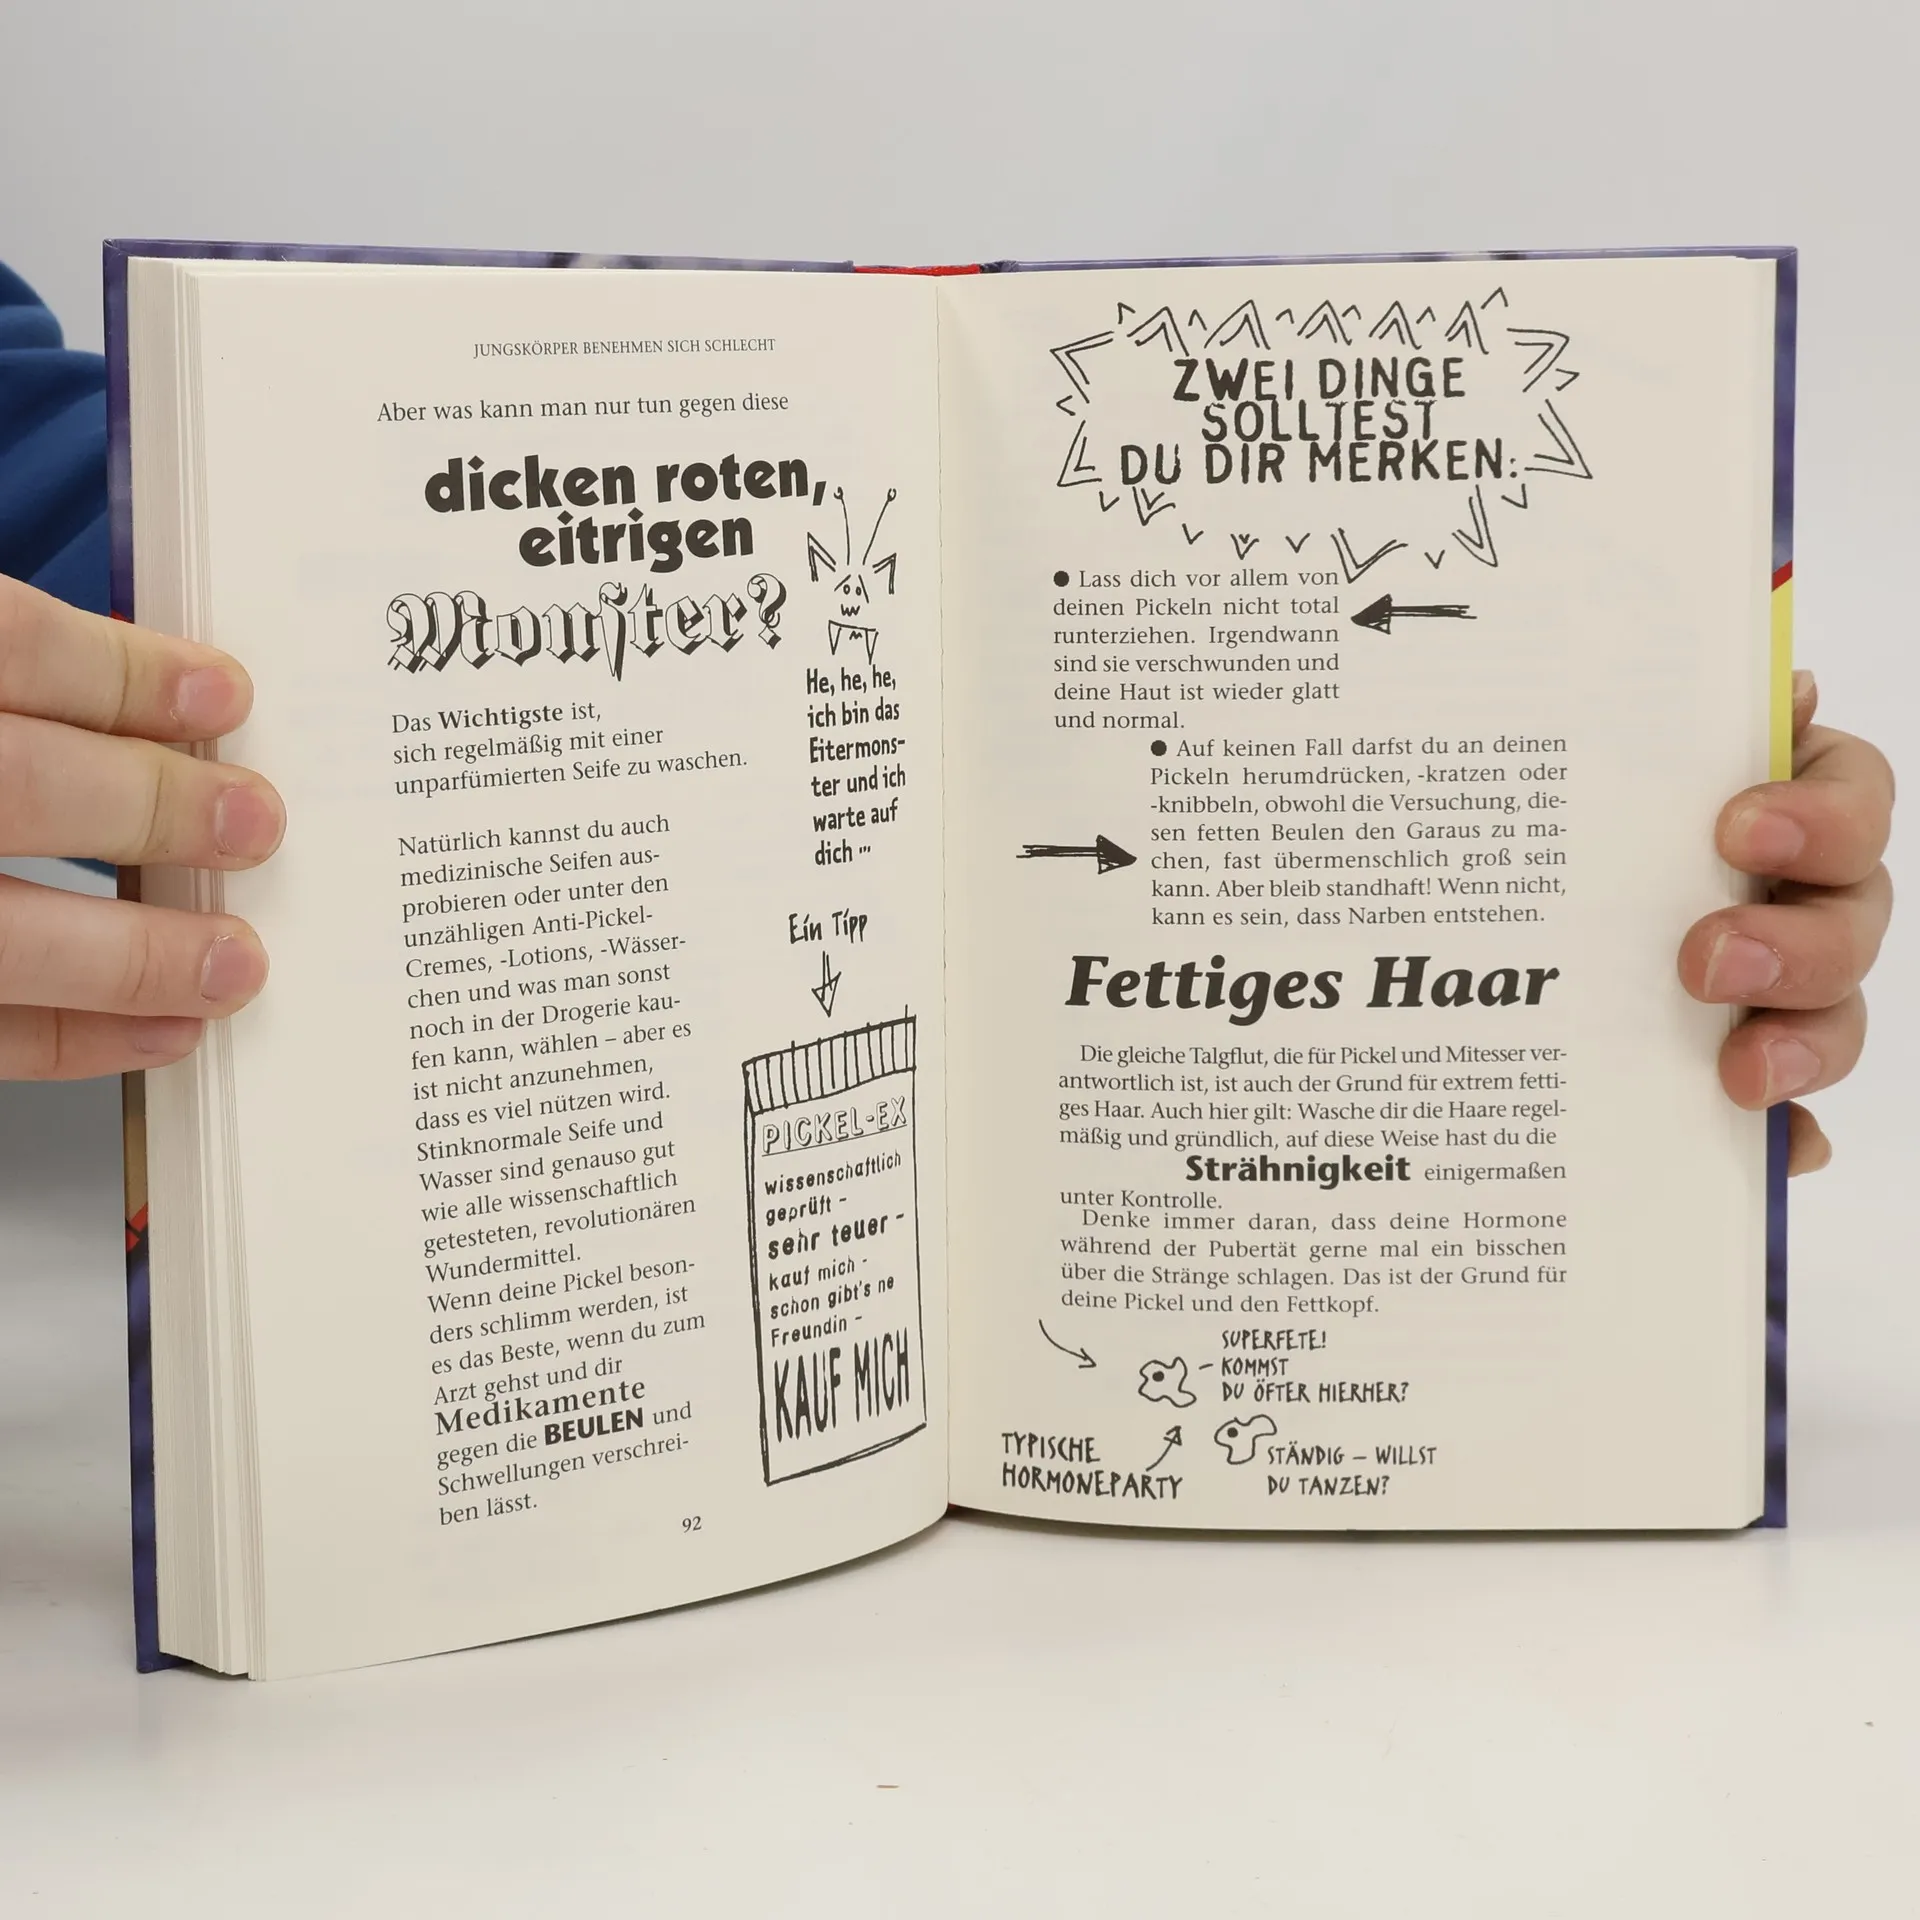 JUNGSKÖRPER BENEHMEN SICH SCHLECHT
Aber was kann man nur tun gegen diese
dicken roten,
eitrigen
Monster?
He, he, he,
ich bin das
Eitermons-
ter und ich
warte auf
dich ...
Das Wichtigste ist,
sich regelmäßig mit einer
unparfümierten Seife zu waschen.
Natürlich kannst du auch
medizinische Seifen aus-
probieren oder unter den
unzähligen Anti-Pickel-
Cremes, -Lotions, -Wässer-
chen und was man sonst
noch in der Drogerie kau-
fen kann, wählen – aber es
ist nicht anzunehmen,
dass es viel nützen wird.
Stinknormale Seife und
Wasser sind genauso gut
wie alle wissenschaftlich
getesteten, revolutionären
Wundermittel.
Wenn deine Pickel beson-
ders schlimm werden, ist
es das Beste, wenn du zum
Arzt gehst und dir
Medikamente
gegen die BEULEN und
Schwellungen verschrei-
ben lässt.
Ein Tipp
PICKEL-EX
wissenschaftlich
geprüft -
sehr teuer -
kauf mich -
schon gibt's ne
Freundin -
KAUF MICH
92
ZWEI DINGE
SOLLTEST
DU DIR MERKEN:
● Lass dich vor allem von
deinen Pickeln nicht total
runterziehen. Irgendwann
sind sie verschwunden und
deine Haut ist wieder glatt
und normal.
● Auf keinen Fall darfst du an deinen
Pickeln herumdrücken, -kratzen oder
-knibbeln, obwohl die Versuchung, die-
sen fetten Beulen den Garaus zu ma-
chen, fast übermenschlich groß sein
kann. Aber bleib standhaft! Wenn nicht,
kann es sein, dass Narben entstehen.
Fettiges Haar
Die gleiche Talgflut, die für Pickel und Mitesser ver-
antwortlich ist, ist auch der Grund für extrem fetti-
ges Haar. Auch hier gilt: Wasche dir die Haare regel-
mäßig und gründlich, auf diese Weise hast du die
Strähnigkeit einigermaßen
unter Kontrolle.
Denke immer daran, dass deine Hormone
während der Pubertät gerne mal ein bisschen
über die Stränge schlagen. Das ist der Grund für
deine Pickel und den Fettkopf.
SUPERFETE!
KOMMST
DU ÖFTER HIERHER?
TYPISCHE
HORMONEPARTY
STÄNDIG – WILLST
DU TANZEN?